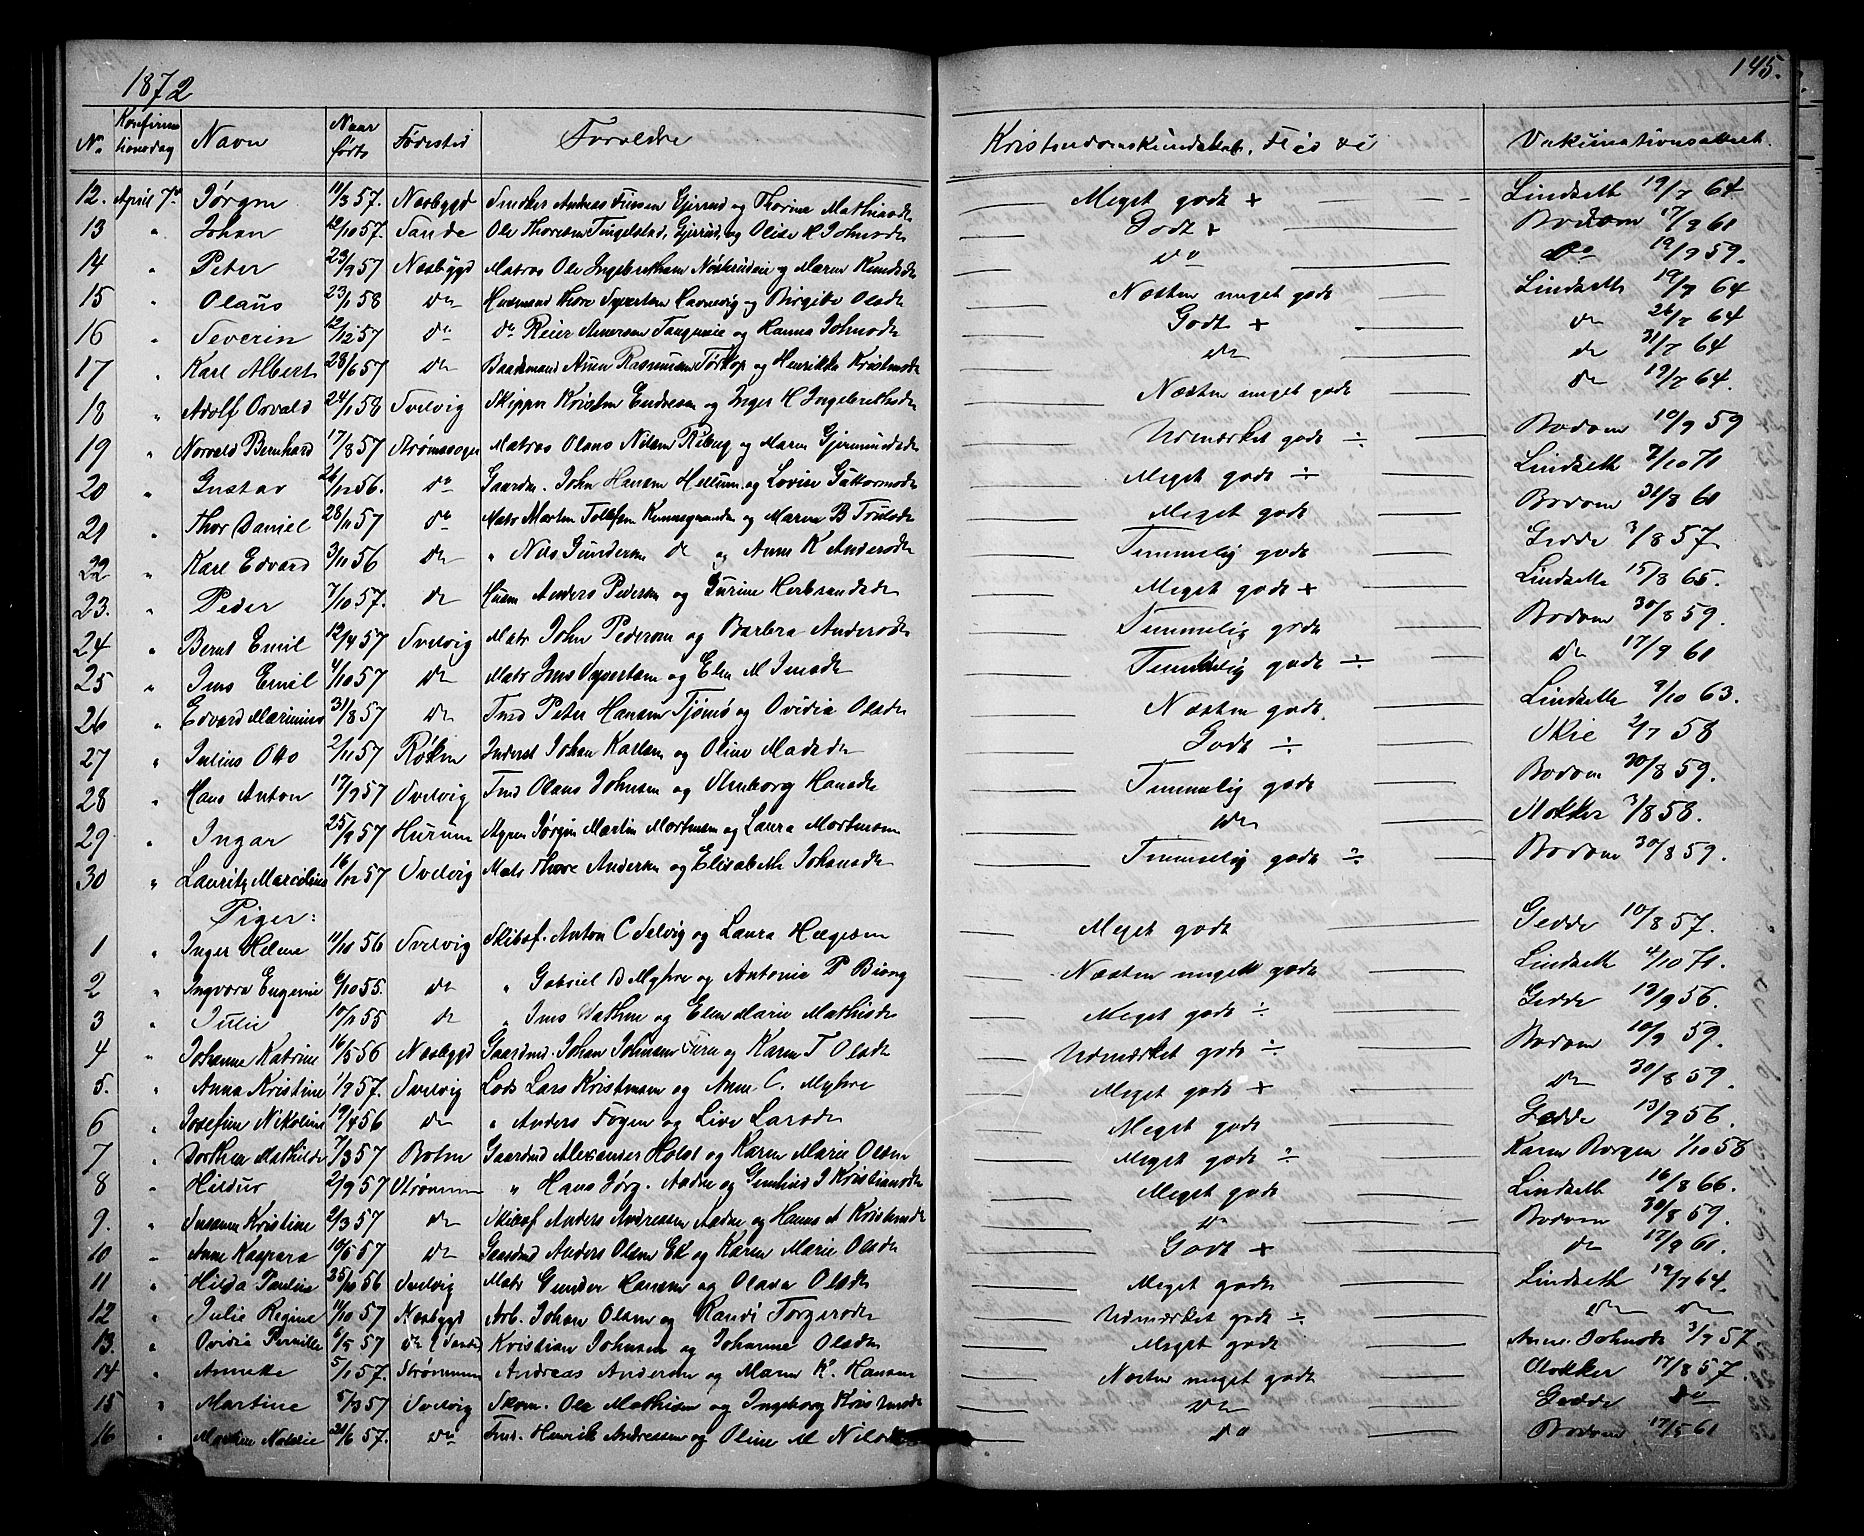 1872 145.
No. Konfirmationsdag Navn Naar født Fødested Forældre Kristendomskundskab, Flid &c Vakcinationsattest.
12. April 7de Jørgen 11/3 57. Næsbygd Andreas Gjerrud og Thorine Mathisdt Meget godt + Lindseth 19/7 64
13 " Johan 12/10 57. Sande Ole Thoresen Tingelstad, Gjerrud, og Olise H Johnsdt Godt + Bodom 17/9 61
14 " Peter 23/9 57 Næsbygd Matros Ole Ingebrethsen og Maren Knudsdt do do 19/9 59.
15 " Olaus 23/1 58 do Husmand Thore Syvertsen Havnevig og Birgithe Olsdt Næsten meget godt Lindseth 19/7 64
16 " Severin 12/12 57 do do Reier Amersen og Hanna Johnsdt Godt + do 26/7 64
17 " Karl Albert 28/6 57 do Baadsmand Arne Rasmussen Tørkop og Henrikke Kristensdt do do 31/7 64
18 " Adolf Osvald 24/1 58 Svelvig Skipper Kristen Endresen og Inger H Ingebrethsdt Næsten meget godt do 19/7 64.
19 " Norvald Bernhard 17/8 57 Strømsoger Matros Olaus Nilsen Riberg og Maren Gjermundsdt Udmærket godt ÷ Bodom 10/9 59
20 " Gustav 26/12 56. do Gaardm. John Hansen Hellum og Lovise Guttormsdt Meget godt ÷ Lindseth 7/10 71
21 " Thor Daniel 28/11 57 do Matr Morten Tollefsen og Maren B Trulsdt Meget godt Bodom 31/8 61
22 " Karl Edvard 3/11 56 do " Nils Gundersen do og Anne K Andersdt Temmelig godt Gedde 3/8 57.
23. " Peder 7/10 57. do Husm Anders Pedersen og Gurine Herbrandsdt Meget godt + Lindseth 15/8 65.
24 " Bernt Emil 12/4 57 Svelvig Matr John Pedersen og Barbra Andersdt Temmelig godt Bodom 30/8 59.
25 " Jens Emil 4/10 57 do Matr Jens Syvertsen og Elen M Jensdt Temmelig godt ÷ do 17/9 61
26 " Edvard Marinius 31/8 57 do Tmd Peter Hansen Tjømø og Ovidia Olsdt Næsten godt. Lindseth 9/10 63.
27 " Julius Otto 2/11 57 Røken Inderst Johan Karlsen og Oline Madsdt Godt ÷ Skie 2/7 58
28 " Hans Anton 17/9 57 Svelvig Tmd Olaus Johnsen og Hansdt Temmelig godt Bodom 30/8 59.
29 " Ingar 25/9 57 Hurum Jørgen Martin Mortensen og Laura Mortensen do Mokker 3/8 58.
30 " Lauritz Marcelius 16/12 57 Svelvig Matr Thore Andersen og Elisabeth Johansdt Temmelig godt ÷ Bodom 30/8 59.
Piger:
1 " Inger Helene 11/11 56 Svelvig Skibsf. Anton C Selvig og Laura Hægesen Meget godt Gedde 10/8 57.
2 " Ingvora Eugenie 6/10 55. do " Gabriel B Myhre og Antonie P Biong Næsten meget godt Lindseth 4/10 71.
3 " Julie 10/12 55 do " Jens og Elen Marie Mathisdt Meget godt ÷ Gedde 13/9 56.
4 " Johanne Katrine 16/5 56 Næsbygd Gaardmd. Johan Johnsen og Karen T Olsdt Udmærket godt ÷ Bodom 10/9 59.
5. " Anna Kristine 1/9 57. Svelvig Lods Lars Kristensen og Anne C. Myhre Meget godt + do 30/8 59.
6 " Josefine Nikoline 19/4 56 do " Anders Fogen og Live Larsdt Meget godt Gedde 13/9 56.
7 " Dorthea Mathilde 7/3 57 Gaardmd Alexander Holst og Karen Marie Olsen Meget godt ÷ Karen Borgen 1/10 58
8 " Hildur 2/9 57 Strømmen " Hans Jørg. Aadne og Gunhild J Kristiansdt Meget godt Lindseth 16/8 66.
9. " Susanne Kristine 2/3 57 do Skibsf Anders Andressen Aadne og Hanna A Kristensdt do Bodom 30/8 59.
10 " Anne Kaspara 10/5 57 do Gaardmd Anders Olsen Ek og Karen Marie Olsdt Godt + do 17/9 61.
11 " Hilda Pauline 25/10 56 Svelvig Matr Gunder Hansen og Olava Olsdt Meget godt Lindseth 19/7 64.
12 " Julie Regine 11/10 57 Næsbygd Arb. Johan Olsen og Randi Torgersdt Udmærket godt ÷ do do
13. " Ovidia Pernille 6/5 57 do (Sande) Kristian Johnsen og Johanne Olsdt Meget godt Anne Johnsdt 3/9 57.
14 " Annette 5/1 57. Strømmen Andreas Andersen og Maren K. Hansen Næsten meget godt Mokker 17/8 57.
15 " Martine 5/3 57 Svelvig Skom. Ole Mathisen og Ingeborg Kristensdt do Gedde do
16 " Maren Nathalie 20/6 57. do Tmd. Henrik Andressen og Oline M Nilsdt do Bodom 17/5 61